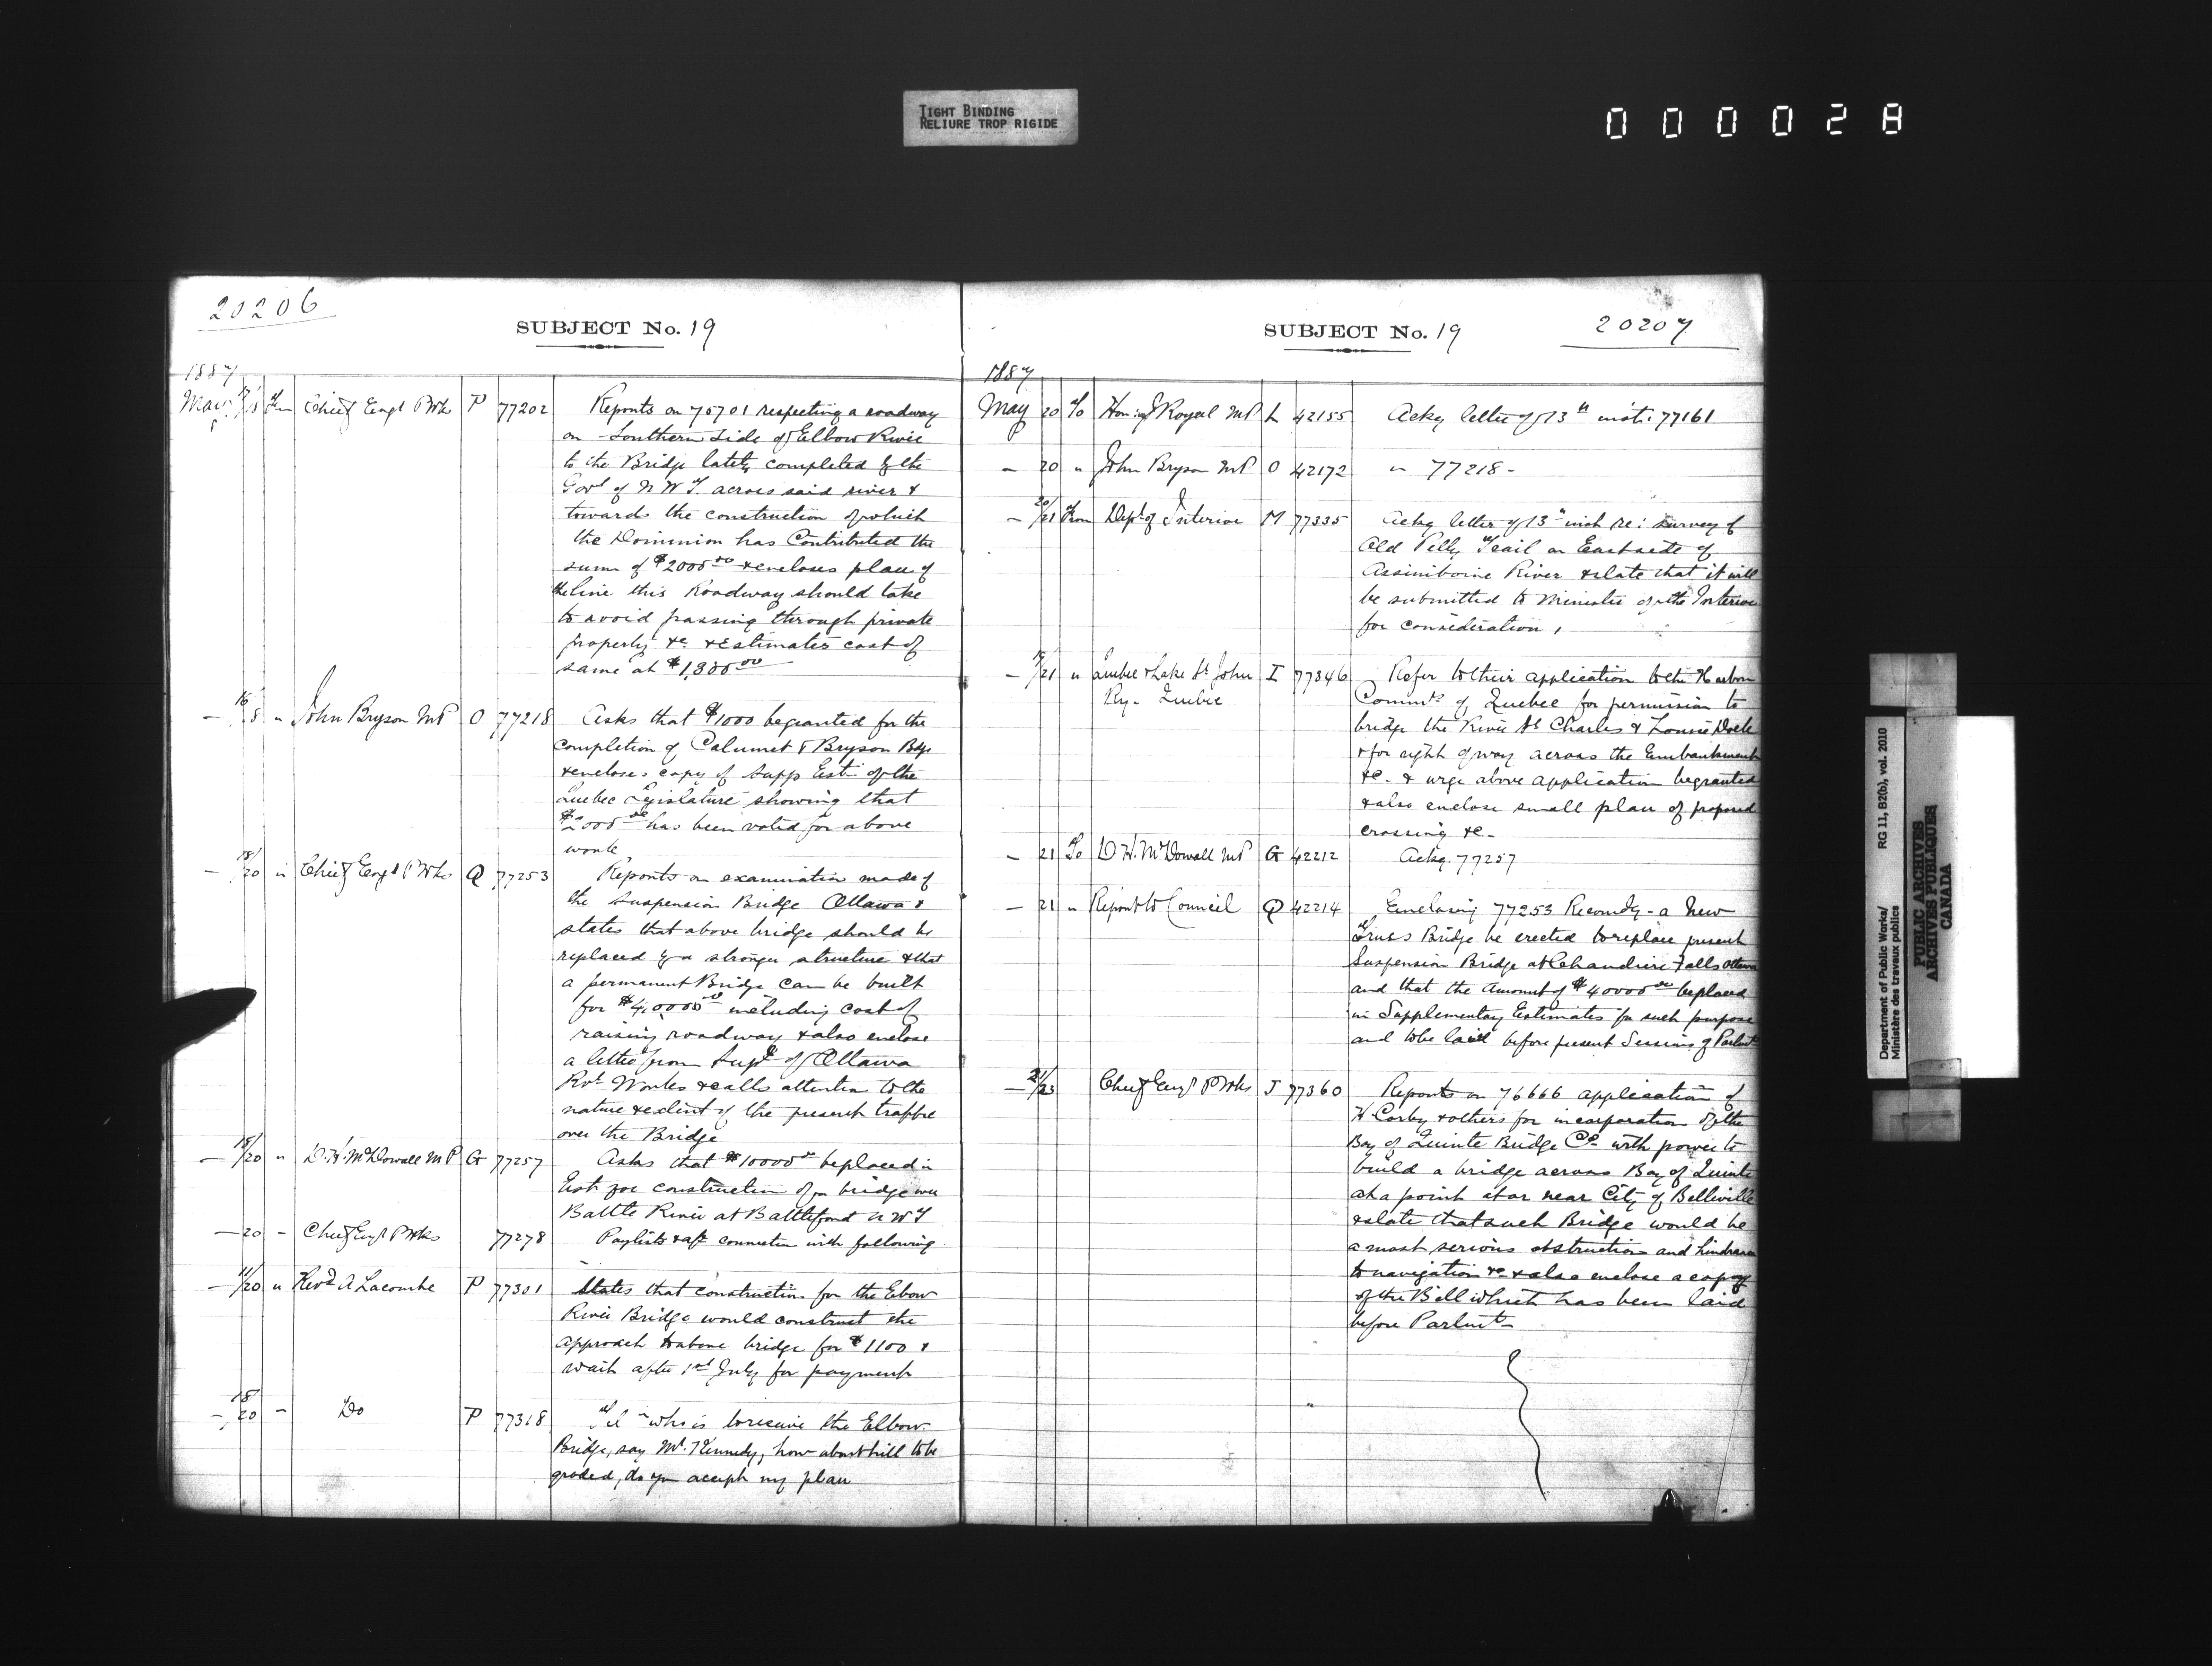 TIGHT BINDING
RELIURE TROP RIGIDE
000028
20206
SUBJECT No. 19
1887
May 17/18 Fm Chief Engr P Wks P 77202 Reports on 75701 respecting a roadway
on Southern side of Elbow River
to the Bridge lately completed by the
Govt of N W T. across said river &
towards the construction of which
the Dominion has Contributed the
sum of $2000.00 & encloses plan of
the line this Roadway should take
to avoid passing through private
property &c & estimates cost of
same at
— 16/18 " John Bryson MP O 77218 Asks that $1000 be granted for the
completion of Calumet & Bryson Bdge
& encloses copy of Supp Esti of the
Quebec Legislature showing that
$2000.00 has been voted for above
work
— 18/20 " Chief Engr P Wks Q 77253 Reports on examination made of
the Suspension Bridge Ottawa &
states that above bridge should be
replaced by a stronger structure & that
a permanent Bridge can be built
for $40000.00 including cost of
raising roadway & also enclose
a letter from Supt of Ottawa
Rvr Works & calls attention to the
nature & extent of the present traffic
over the Bridge
— 18/20 " D. H. McDowall M P G 77257 Asks that $10000.00 be placed in
Est for construction of a bridge over
Battle River at Battleford N W T
— 20 - Chief Engr P Wks 77278 Paylists & a/cs connection with following
— 11/20 " Revd A Lacombe P 77301 States that construction for the Elbow
River Bridge would construct the
approach to above bridge for $1100 &
wait after 1st July for payment
— 18/20 - Do P 77318 Tel - who is to receive the Elbow
Bridge, say Mr. Kennedy, how about hill to be
graded, do you accept my plan
SUBJECT No. 19
20207
1887
May 20 To Hon: J Royal MP L 42155 Ackg letter of 13th inst: 77161
— 20 " John Bryson MP O 42172 " 77218 -
— 20/21 From Dept of Interior M 77335 Ackg letter of 13th inst re: survey of
Old Pelly Trail on East side of
Assiniboine River & state that it will
be submitted to Minister of the Interior
for consideration,
— 19/21 " Quebec & Lake St. John I 77346 Refer to their application to the Harbor
Ry - Quebec Commrs of Quebec for permission to
bridge the River St Charles & Louise Dock
& for right of way across the Embankment
&c - & urge above application be granted
& also enclose small plan of proposed
crossing &c -
— 21 To D H. McDowall MP G 42212 Ackg. 77257
— 21 " Report to Council Q 42214 Enclosing 77253 Recomdg - a New
Truss Bridge be erected to replace present
Suspension Bridge at Chaudiere Falls Ottawa
and that the Amount of $40000.00 be placed
in Supplementary Estimates for such purpose
and to be laid before present Session of Parlmt
— 21/23 Chief Engr P Wks J 77360 Reports on 76666 application of
H Corby & others for incorporation of the
Bay of Quinte Bridge Co. with power to
build a bridge across Bay of Quinte
at a point at or near City of Belleville
& state that such Bridge would be
a most serious obstruction and hindrance
to navigation &c & also enclose a copy
of the Bill which has been laid
before Parlmt -
Department of Public Works/ RG 11, B2(b), vol. 2010
Ministère des travaux publics
PUBLIC ARCHIVES
ARCHIVES PUBLIQUES
CANADA